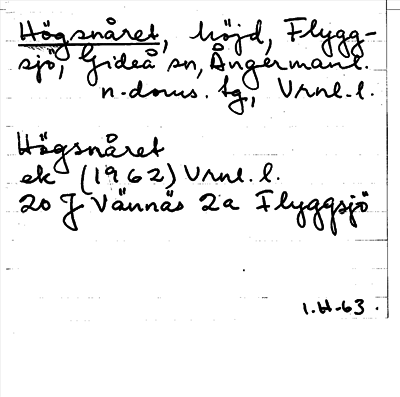 Högsnåret, höjd, Flygg-
sjö, Gideå sn, Ångermanl.
n. doms. tg, Vrnl. l.
Högsnåret
ek (1962) Vrnl. l.
20 J Vännäs 2a Flyggsjö
1.H-63.